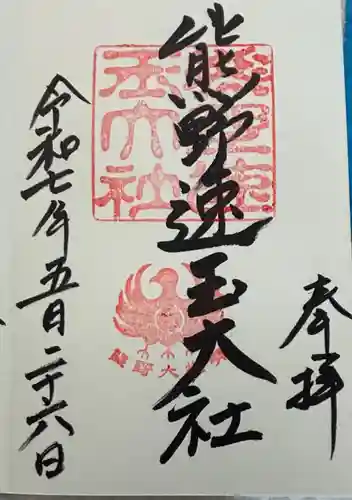 奉拝
熊野速玉大社
熊野速玉大社
熊野大社
令和七年五月二十六日